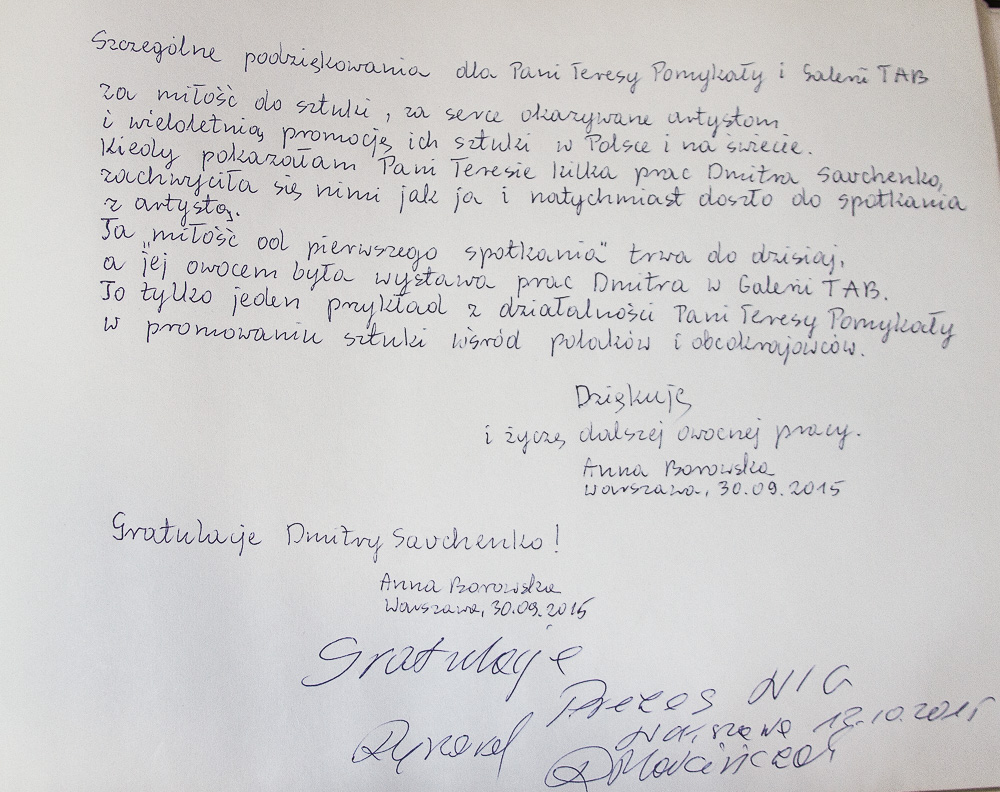 Szczególne podziękowania dla Pani Teresy Pomykały i Galerii TAB
za miłość do sztuki, za serce okazywane artystom
i wieloletnią promocję ich sztuki w Polsce i na świecie.
Kiedy pokazałam Pani Teresie kilka prac Dmitra Savchenko,
zachwyciła się nimi jak ja i natychmiast doszło do spotkania
z artystą.
Ta „miłość od pierwszego spotkania" trwa do dzisiaj,
a jej owocem była wystawa prac Dmitra w Galerii TAB.
To tylko jeden przykład z działalności Pani Teresy Pomykały
w promowaniu sztuki wśród polaków i obcokrajowców.
Dziękuję
i życzę dalszej owocnej pracy.
Anna Borowska
Warszawa, 30.09.2015
Gratulacje Dmitry Savchenko!
Anna Borowska
Warszawa, 30.09.2015
Gratulacje
Prezes
Warszawa 12.10.2015